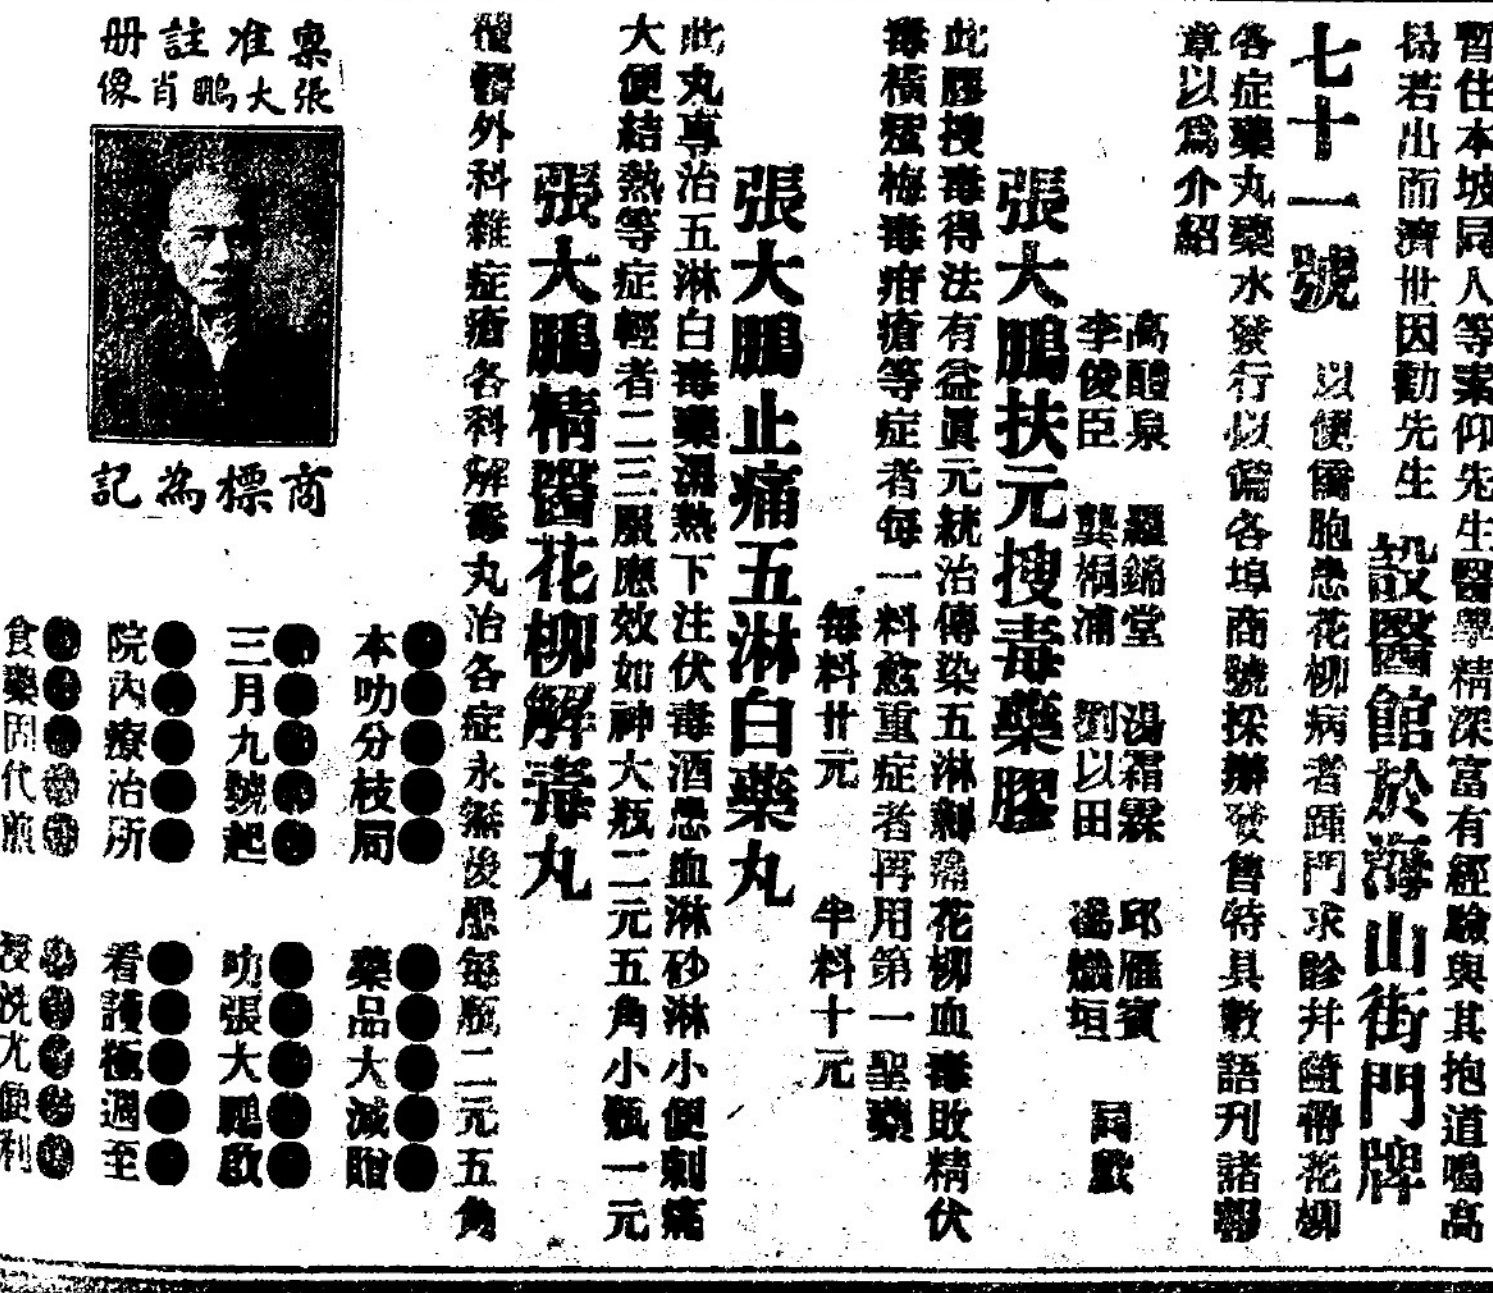 暫住本坡同人等素仰先生醫學精深富有經驗與其抱道鳴高
曷若出而濟世因勸先生 設醫館於海山街門牌
七十一號 以便僑胞患花柳病者踵門求診并隨帶花柳
各症藥丸藥水發行以備各埠商號採辦發售特具數語刊諸報
章以爲介紹
高醴泉 羅錦堂 湯霜霖 邱雁賓
李俊臣 龔桐浦 劉以田 馮熾垣 同啟
張大鵬扶元搜毒藥膠
此膠搜毒得法有益眞元統治傳染五淋剌痛花柳血毒敗精伏
毒橫痃梅毒疳瘡等症者每一料愈重症者再用第一聖藥
每料廿元 半料十元
張大鵬止痛五淋白藥丸
此丸專治五淋白毒藥濕熱下注伏毒酒患血淋砂淋小便刺痛
大便結熱等症輕者二三服應效如神大瓶二元五角小瓶一元
張大鵬精醫花柳解毒丸
外科雜症瘡各科解毒丸治各症永無後患每瓶二元五角
稟准註册
張大鵬肖像
商標為記
本叻分枝局 藥品大減贈
三月九號起 叻張大鵬啟
院內療治所 看護極週至
食藥固代煎 浸洗尤便利